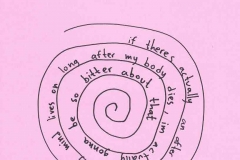 if there's actually an
mind lives on long after my body dies i'm actually gonna be so bitter about that